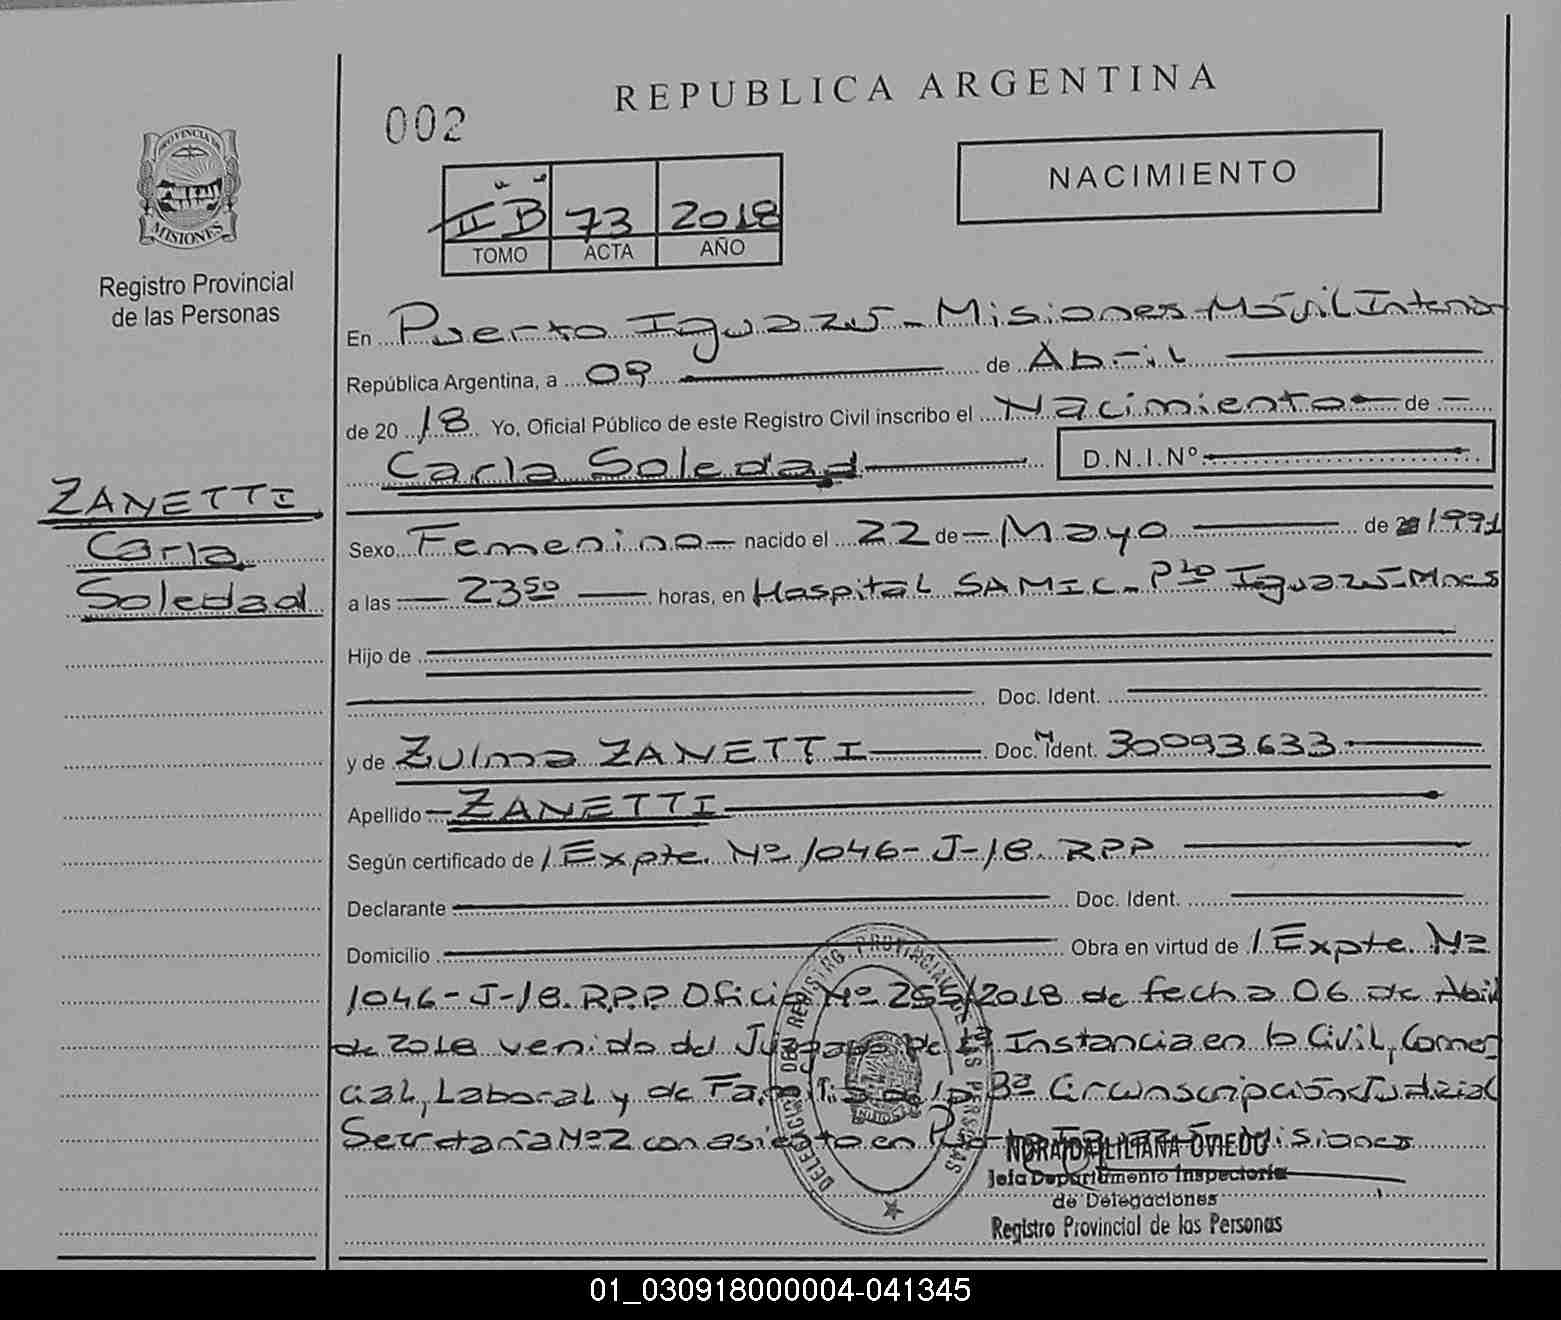 REPUBLICA ARGENTINA
002
NACIMIENTO
PROVINCIA DE
MISIONES
Registro Provincial
de las Personas
II B 73 2018
TOMO ACTA AÑO
En Puerto Iguazú - Misiones - Móvil Interno
República Argentina, a 09 de Abril
de 2018 Yo, Oficial Público de este Registro Civil inscribo el Nacimiento de
Carla Soledad D.N.I.Nº
ZANETTI
Carla
Soledad
Sexo Femenino nacido el 22 de Mayo de 1991
a las 23 50 horas, en Hospital SAMIC - Pto Iguazú - Mnes
Hijo de
Doc. Ident.
y de Zulma ZANETTI Doc. Ident. 30093.633
Apellido ZANETTI
Según certificado de / Expte. Nº 1046-J-18. RPP
Declarante Doc. Ident.
Domicilio Obra en virtud de / Expte. Nº
1046-J-18. R.P.P. Oficio Nº 255/2018 de fecha 06 de Abril
de 2018 venido del Juzgado de 1ª Instancia en lo Civil, Comer
cial, Laboral y de Familia de la 3ª Circunscripción Judicial
Secretaria Nº 2 con asiento en Puerto Iguazú - Misiones
DELEGACION DEL REGISTRO PROVINCIAL DE LAS PERSONAS
NORAIDA LILIANA OVIEDO
Jefa Departamento Inspectoría
de Delegaciones
Registro Provincial de las Personas
01_030918000004-041345